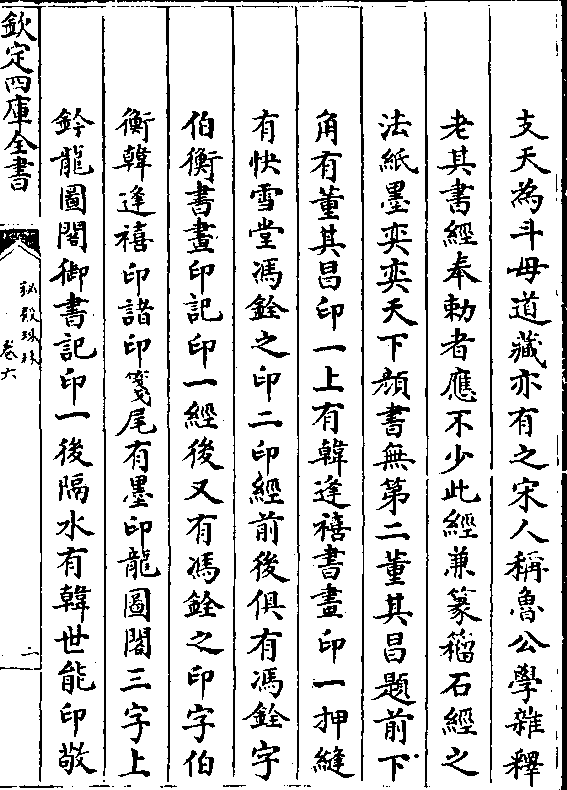 支天為斗母道藏亦有之宋人稱魯公學雜釋
老其書經奉勅者應不少此經兼篆籀石經之
法紙墨奕奕天下顔書無第二董其昌題前下
角有董其昌印一上有韓逢禧書畫印一押縫
有快雪堂馮銓之印二印經前後俱有馮銓字
伯衡書畫印記印一經後又有馮銓之印字伯
衡韓逢禧印諸印箋尾有墨印龍圖閣三字上
鈐龍圖閣御書記印一後隔水有韓世能印敬
欽定四庫全書
秘殿珠林
卷六
二